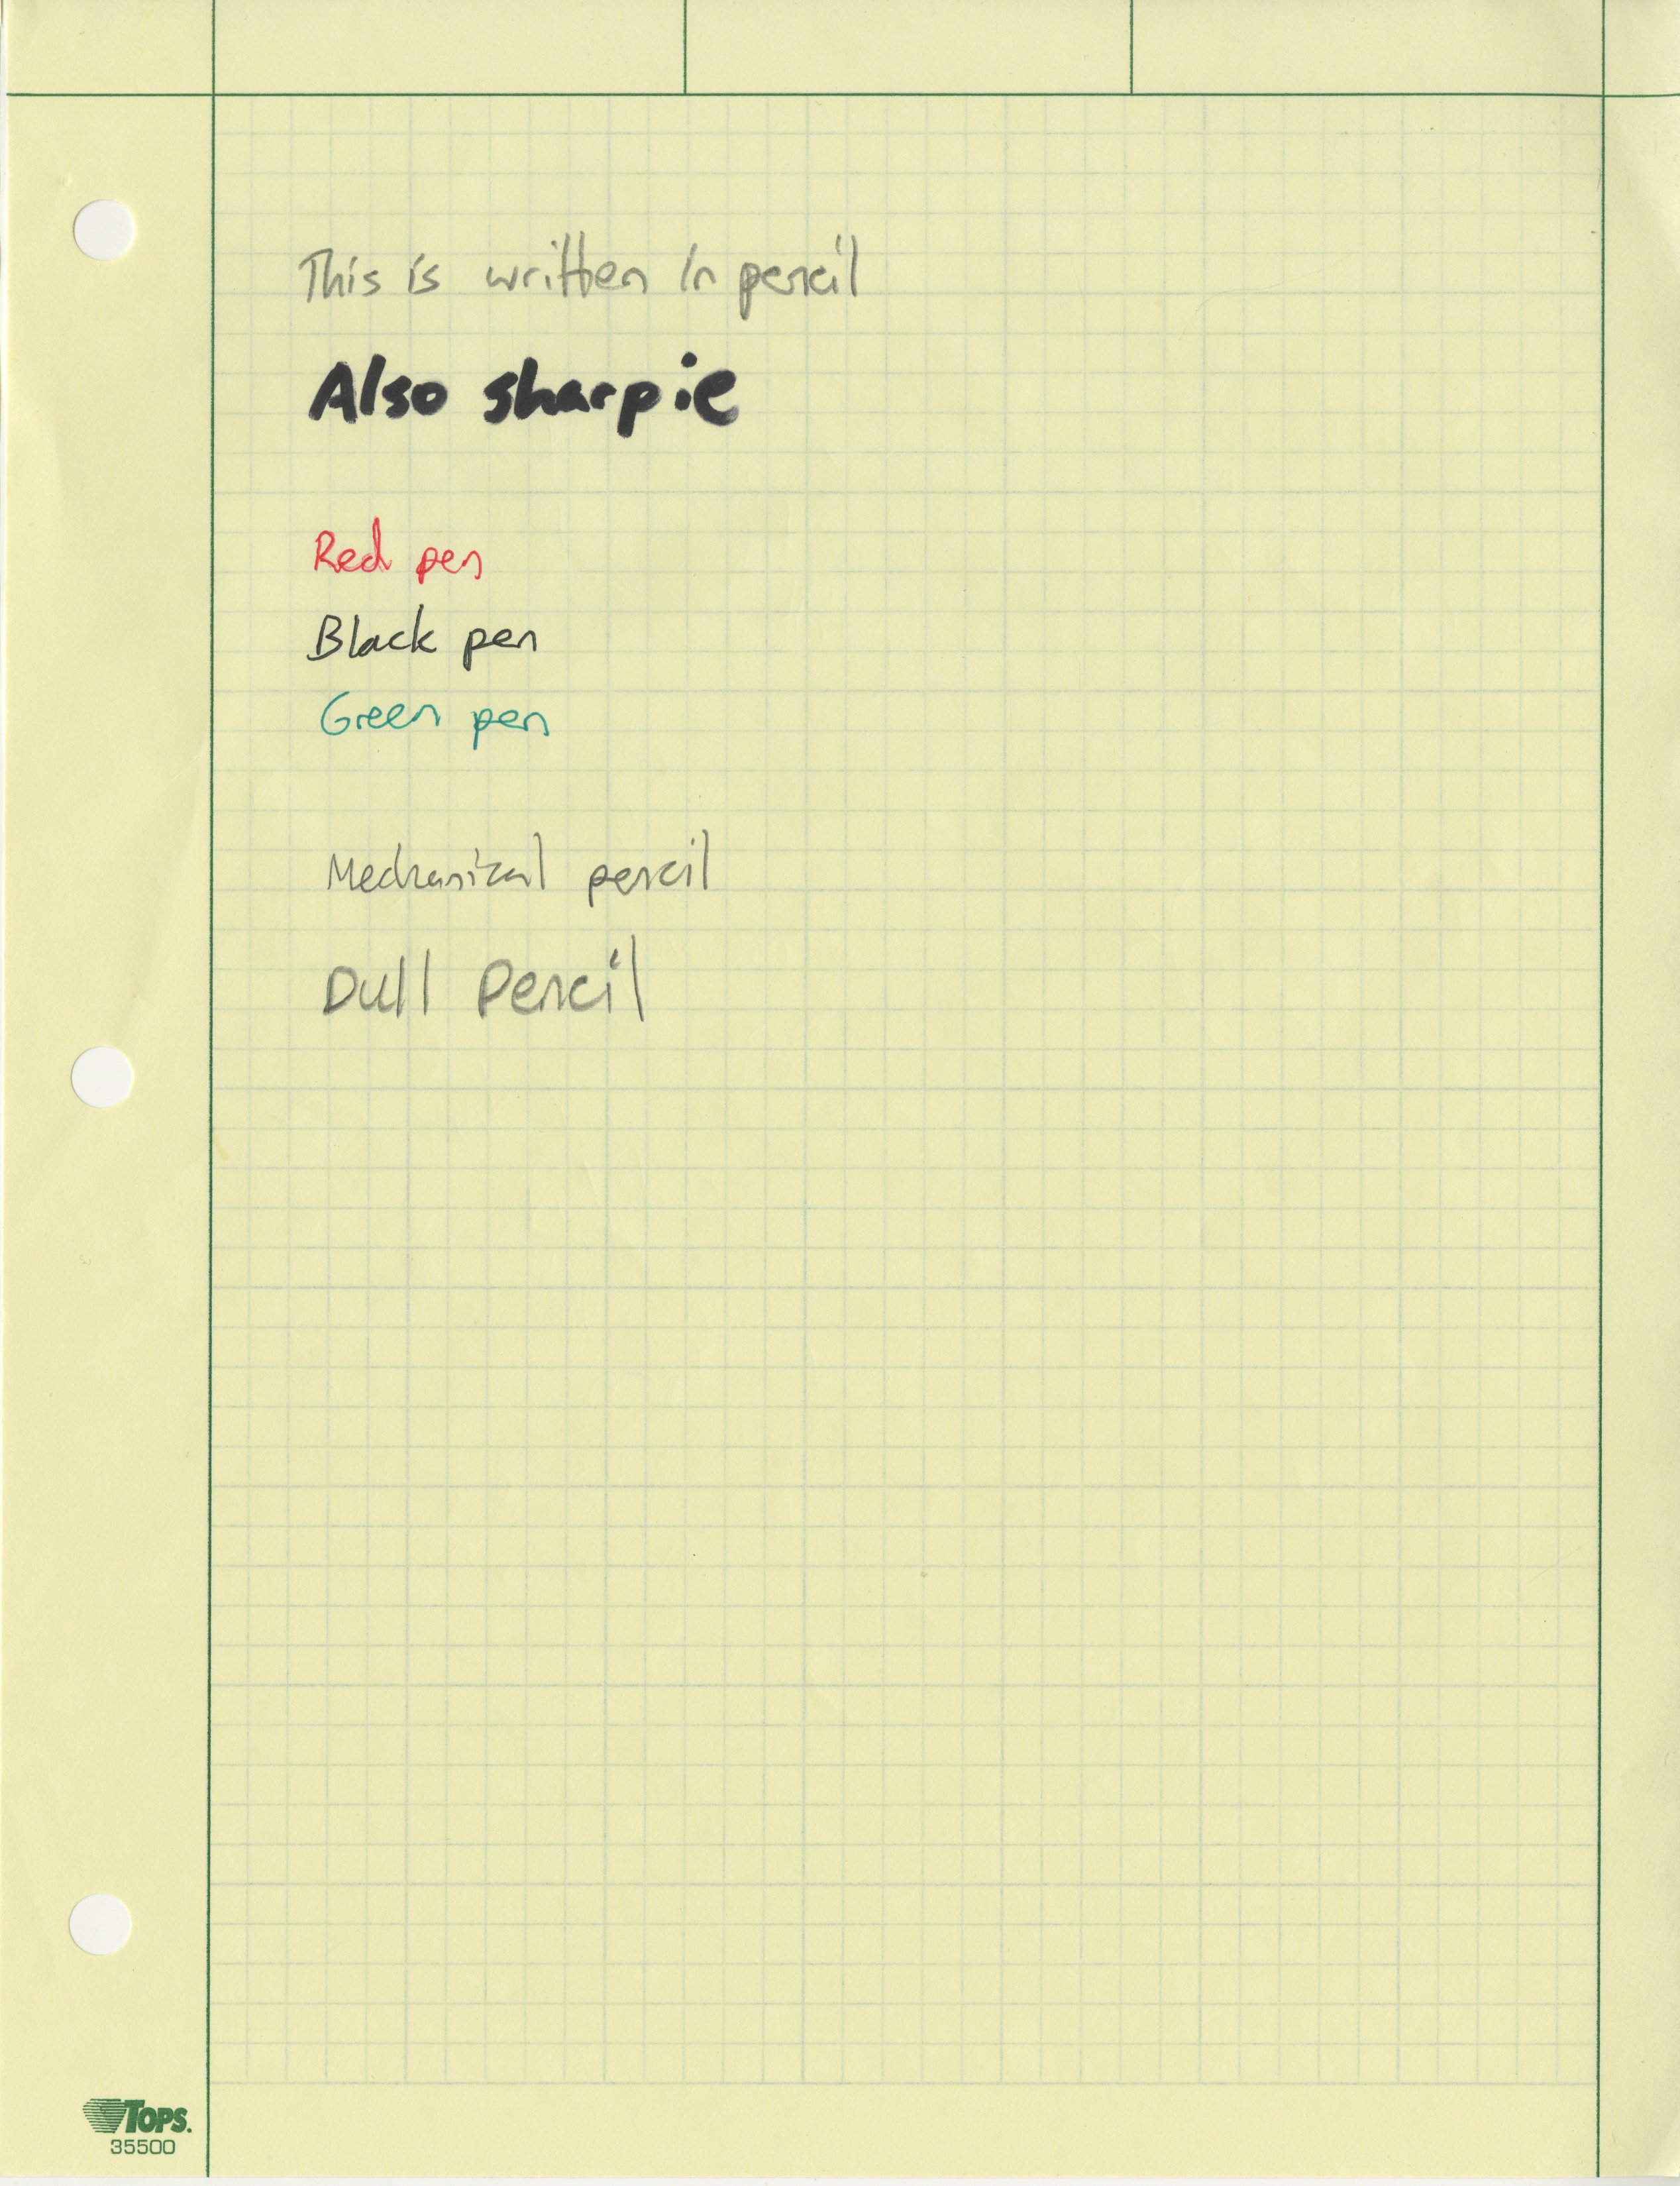 This is written in pencil
Also sharpie
Red pen
Black pen
Green pen
Mechanical pencil
Dull Pencil
TOPS.
35500